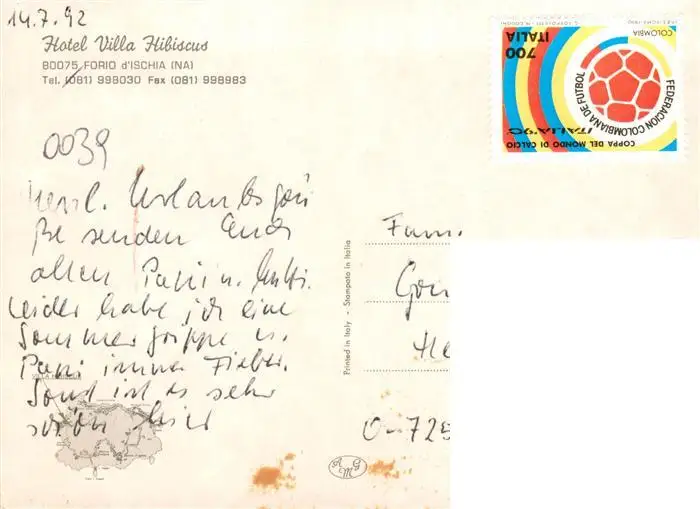 14.7.92
Hotel Villa Hibiscus
80075 FORIO d'ISCHIA (NA)
Tel. (081) 998030 Fax (081) 998983
0039
Herzl. Urlaubsgrü
ße senden Euch
allen Papi u. Mutti.
Leider habe ich eine
Sommergrippe u.
Papi immer Fieber.
Sonst ist es sehr
schön hier
Printed in Italy - Stampato in Italia
Fam.
O-725
A M G
COLOMBIA
ITALIA
700
FEDERACION COLOMBIANA DE FUTBOL
ITALIA '90
COPPA DEL MONDO DI CALCIO